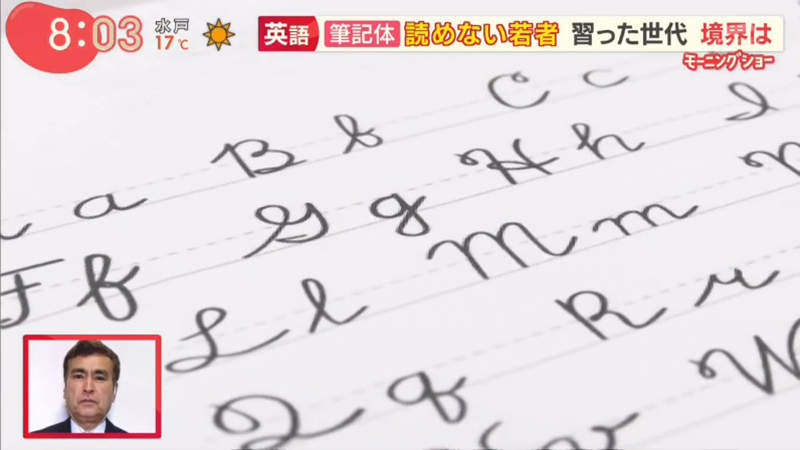 8:03 水戸 17℃ 英語 筆記体 読めない若者 習った世代 境界は
モーニングショー
a B b C c
F f G g H h
L l M m
Q q R r W